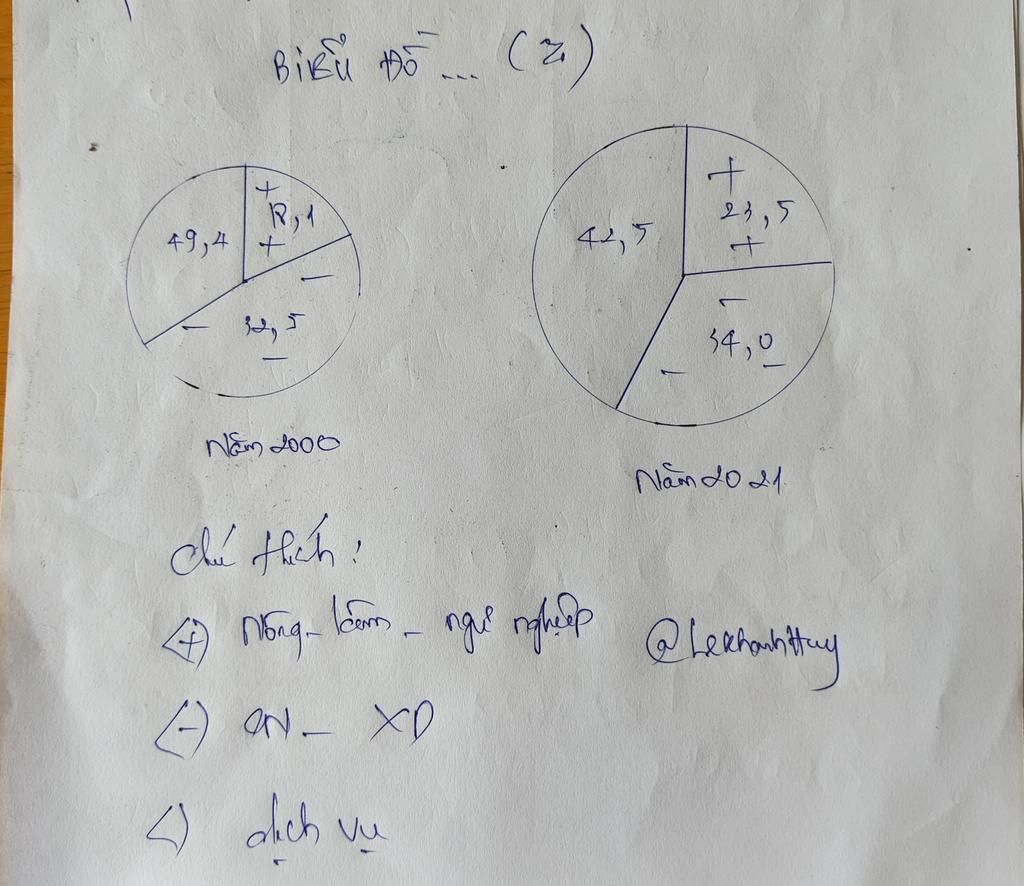 BIỂU ĐỒ... (%)
+
18,1
+
49,4
-
32,5
-
-
Năm 2000
+
23,5
+
42,5
-
34,0
-
-
Năm 2021
Chú thích:
(+) Nông - lâm - ngư nghiệp
@LeKhanhHuy
(-) CN - XD
() dịch vụ